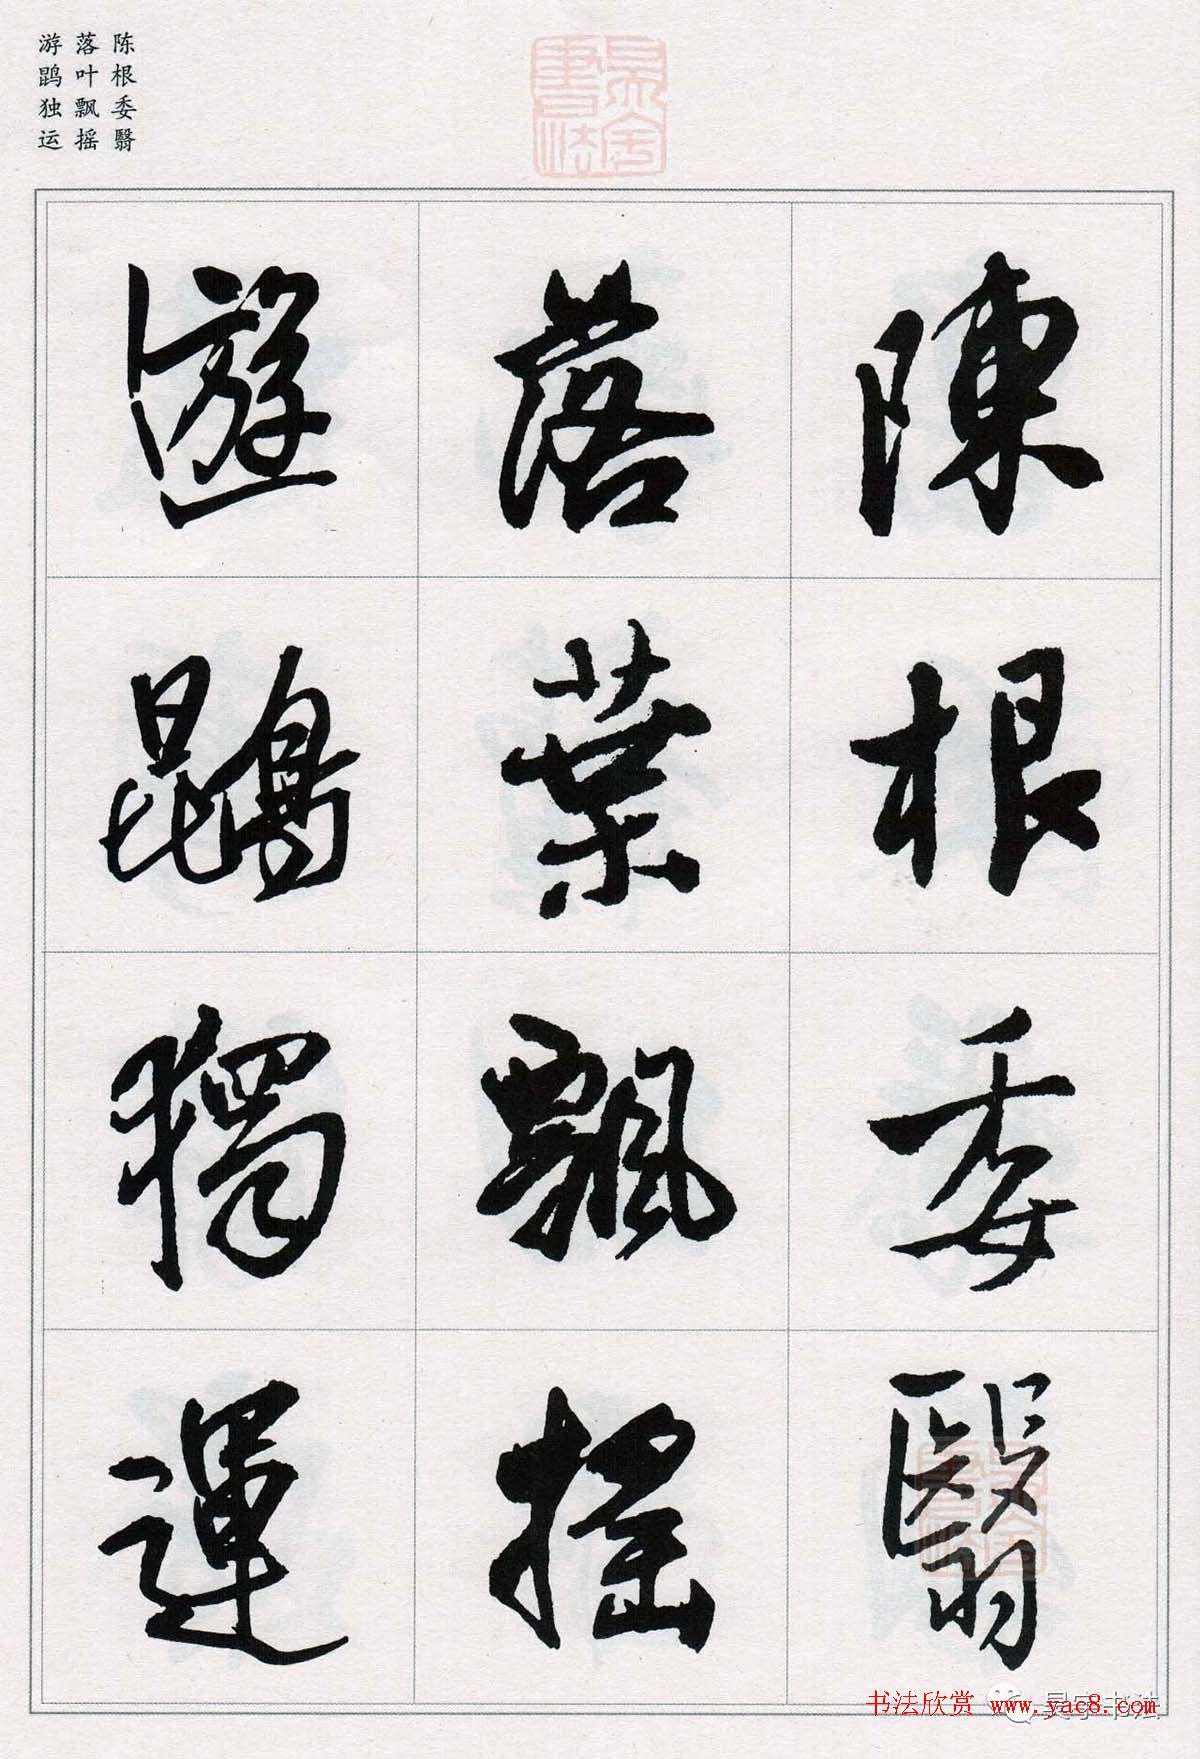 陈根委翳
落叶飘摇
游鹍独运
陳根委翳
落葉飄摇
遊鵾獨運
書法
书法欣赏 www.yac8.com
昊宇书法